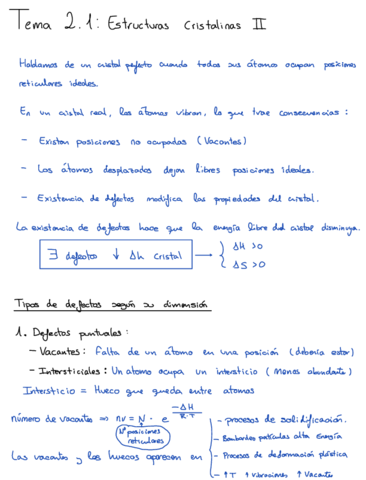 Tema 2.1: Estructuras Cristalinas II
Hablamos de un cristal perfecto cuando todos sus átomos ocupan posiciones
reticulares ideales.
En un cristal real, los átomos vibran, lo que trae consecuencias:
- Existan posiciones no ocupadas (Vacantes)
- Los átomos desplazados dejan libres posiciones ideales.
- Existencia de defectos modifica las propiedades del cristal.
La existencia de defectos hace que la energía libre del cristal disminuya.
∃ defectos ↓ Δh cristal → { ΔH >0
ΔS >0
Tipos de defectos según su dimensión
1. Defectos puntuales:
- Vacantes: Falta de un átomo en una posición (debería estar)
- Intersticiales: Un átomo ocupa un intersticio (Menos abundante)
Intersticio = Hueco que queda entre átomos
número de vacantes ⇒ nv = N · e^(-ΔH / R·T)
Nº posiciones
reticulares
Las vacantes y los huecos aparecen en
- procesos de solidificación.
- Bombardeo partículas alta Energía
- Procesos de deformación plástica
- ↑T ↑ vibraciones ↑ Vacantes